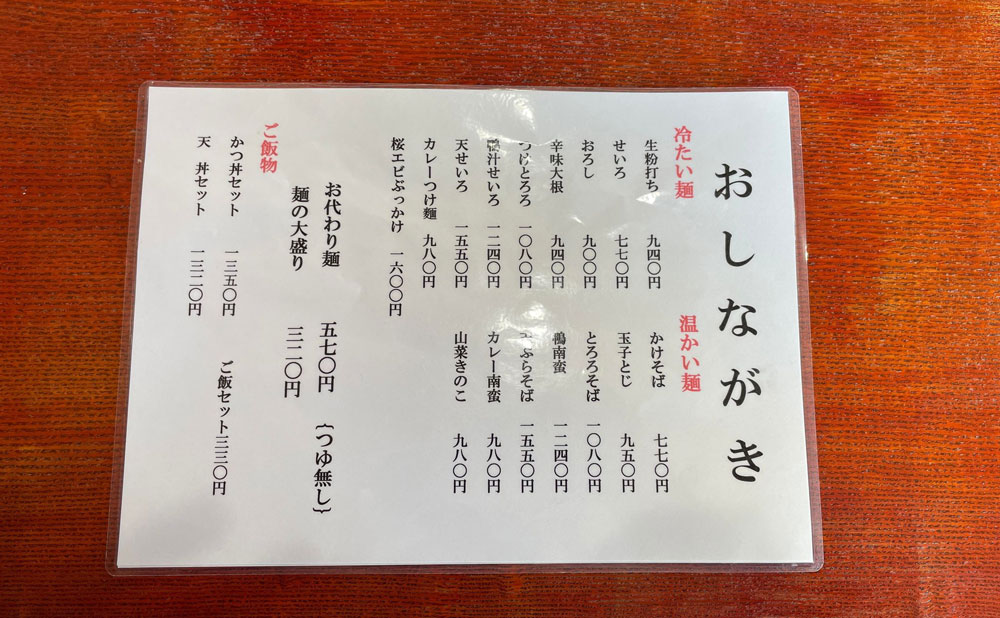 おしながき
冷たい麺
生粉打ち 九四〇円
せいろ 七七〇円
おろし 九〇〇円
辛味大根 九四〇円
つけとろろ 一〇八〇円
鴨汁せいろ 一二四〇円
天せいろ 一五五〇円
カレーつけ麺 九八〇円
桜エビぶっかけ 一六〇〇円
温かい麺
かけそば 七七〇円
玉子とじ 九五〇円
とろろそば 一〇八〇円
鴨南蛮 一二四〇円
ぷらそば 一五五〇円
カレー南蛮 九八〇円
山菜きのこ 九八〇円
お代わり麺 五七〇円 {つゆ無し}
麺の大盛り 三二〇円
ご飯物
かつ丼セット 一三五〇円
天 丼セット 一三二〇円
ご飯セット三三〇円